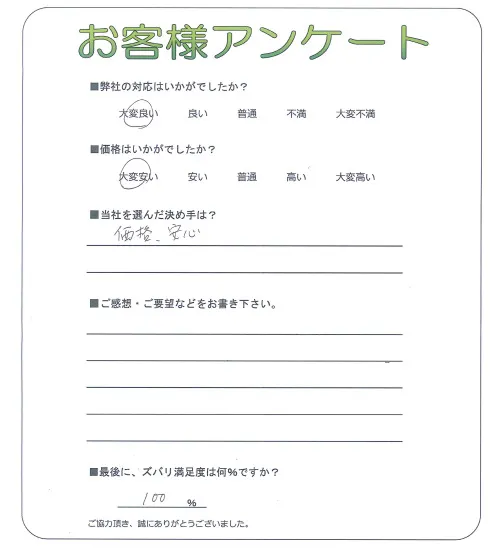 お客様アンケート
■弊社の対応はいかがでしたか？
大変良い 良い 普通 不満 大変不満
■価格はいかがでしたか？
大変安い 安い 普通 高い 大変高い
■当社を選んだ決め手は？
価格、安心
■ご感想・ご要望などをお書き下さい。
■最後に、ズバリ満足度は何%ですか？
100 %
ご協力頂き、誠にありがとうございました。